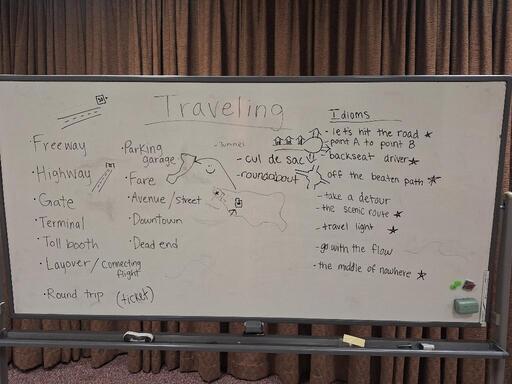 Traveling
• Freeway
• Highway
• Gate
• Terminal
• Toll booth
• Layover / connecting flight
• Round trip (ticket)
• Parking garage
• Fare
• Avenue / street
• Downtown
• Dead end
- Tunnel
- cul de sac
- roundabout
Idioms
- let's hit the road
- point A to point B
- backseat driver
- off the beaten path
- take a detour
- the scenic route
- travel light
- go with the flow
- the middle of nowhere